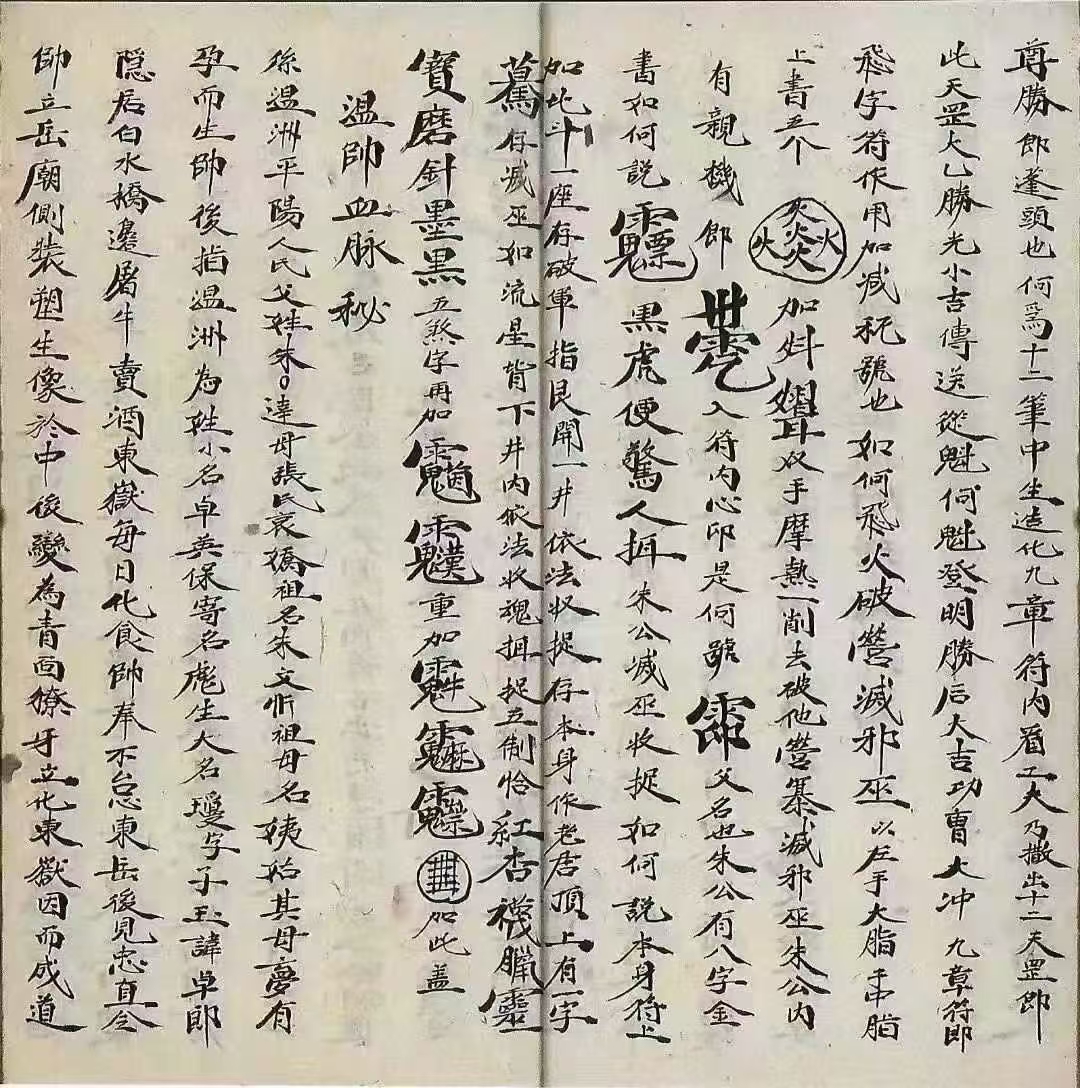 尊勝郎蓬頭也何爲十二筆中生造化九章符内眉工大乃撒出十二天罡即
此天罡火乚勝光小吉傳送從魁何魁登明勝后大吉功曹大冲九章符即
飛字符作用加减秖號也如何飛火破營滅邪巫以左手大脂手中脂
上書五个加斗耳双手摩熱一削去破他營寨滅邪巫朱公内
有親機郎入符内心印是何號父名也朱公有八字金
書如何說黑虎便驚人抇朱公滅巫收捉如何說本身符上
如此斗一座存破軍指艮開一井依法収捉存本身作老居頂上有一字
存滅巫如流星皆下井内依法收魂抇捉五制恰紅杏襪臘靈
寶磨針墨黑五煞字再加重加加此盖
温帥血脉秘
係温洲平陽人氏父姓朱。達母張氏哀嬌祖名朱文忻祖母名姨始其母夢有
孕而生帥後指温洲為姓小名卓英保寄名彪生大名瓊字子玉諱卓郎
隐居白水橋邊屠牛賣酒東嶽每日化食帥奉不怠東岳後見忠直令
帥立岳廟側裝塑生像於中後變為青面獠牙立化東嶽因而成道